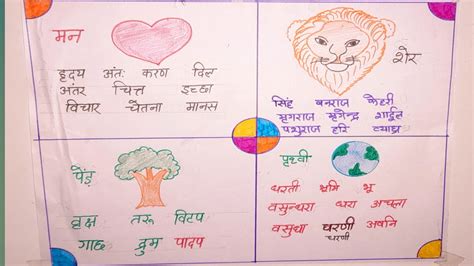 मन
हृदय अंतः करण दिल
अंतर चित्त इच्छा
विचार चेतना मानस
शेर
सिंह वनराज केहरी
मृगराज मृगेन्द्र शार्दूल
पशुराज हरि व्याघ्र
पेड़
वृक्ष तरू विटप
गाछ द्रुम पादप
पृथ्वी
धरती भूमि भू
वसुन्धरा धरा अचला
वसुधा धरणी अवनि
धरणी